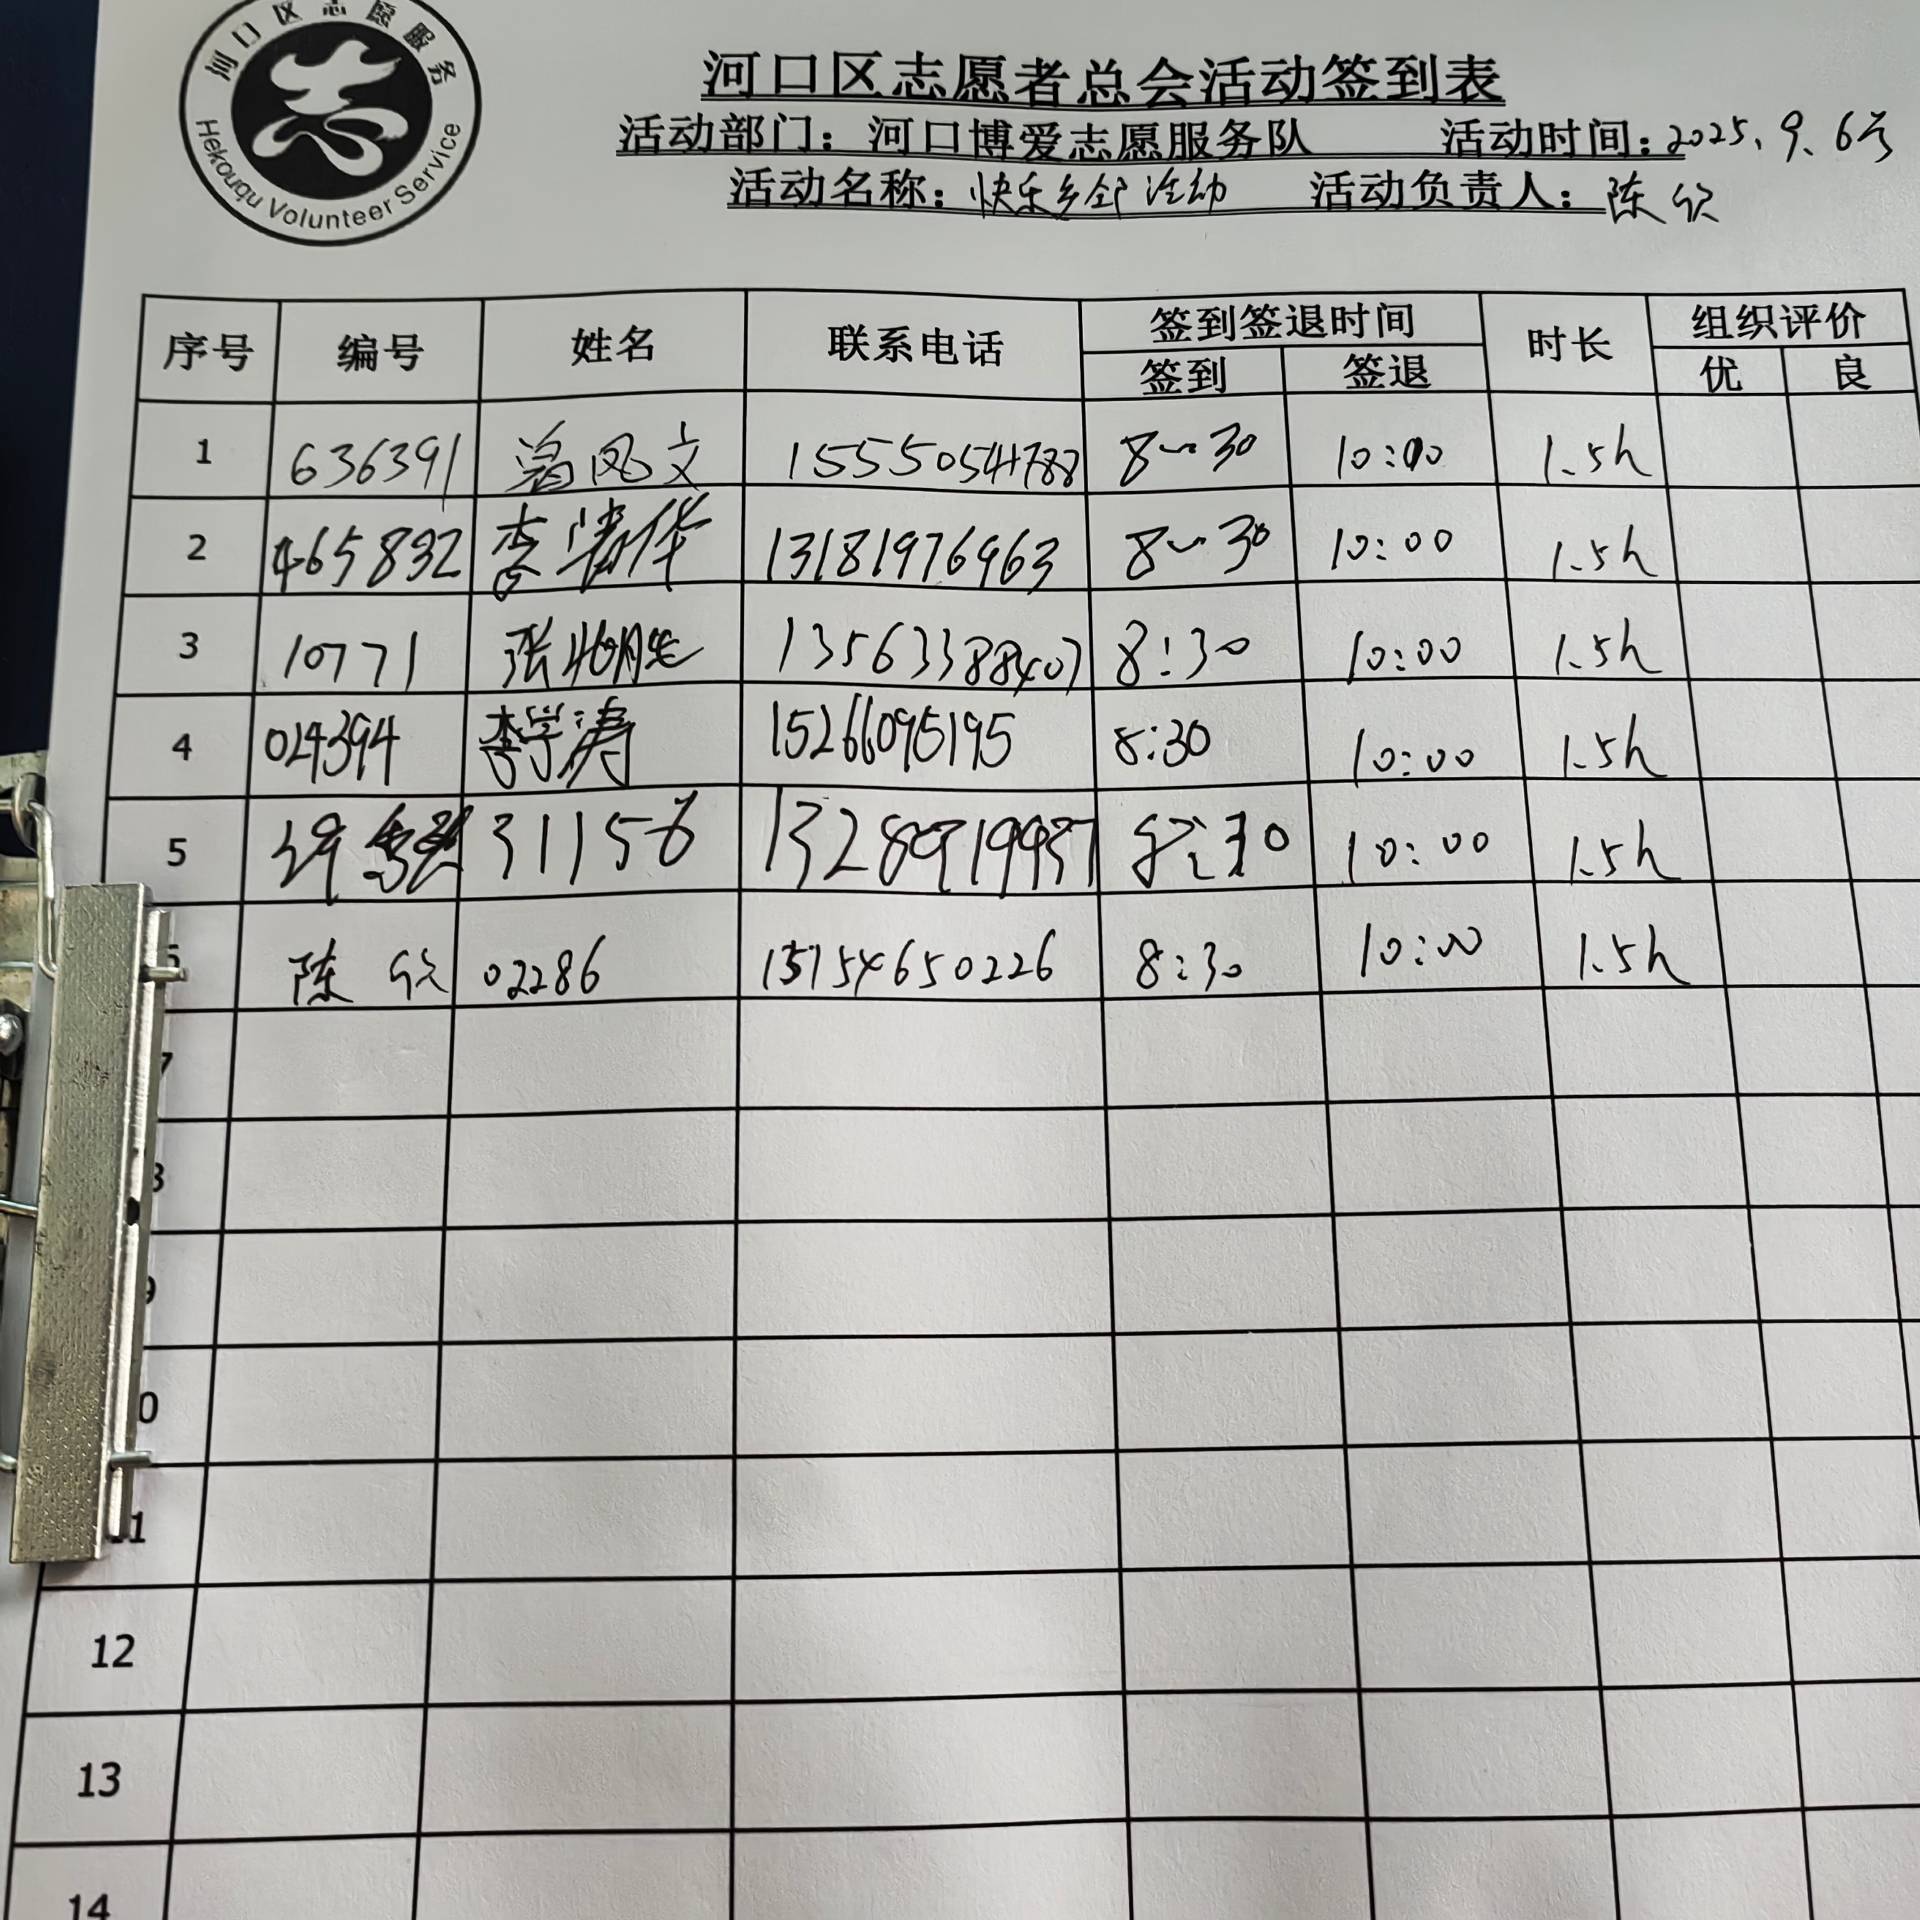 河口区志愿服务
Hekouqu Volunteer Service
河口区志愿者总会活动签到表
活动部门：河口博爱志愿服务队 活动时间：2025.9.6号
活动名称：快乐乡邻活动 活动负责人：陈欣
序号 编号 姓名 联系电话 签到签退时间 时长 组织评价
签到 签退 优 良
1 636391 凤文 15550541788 8~30 10:00 1.5h
2 465832 李清华 13181976963 8~30 10:00 1.5h
3 10771 张 13563388407 8:30 10:00 1.5h
4 024394 李学涛 15266095195 8:30 10:00 1.5h
5 31156 13289719937 8:30 10:00 1.5h
陈欣 02286 15154650226 8:30 10:00 1.5h
12
13
14